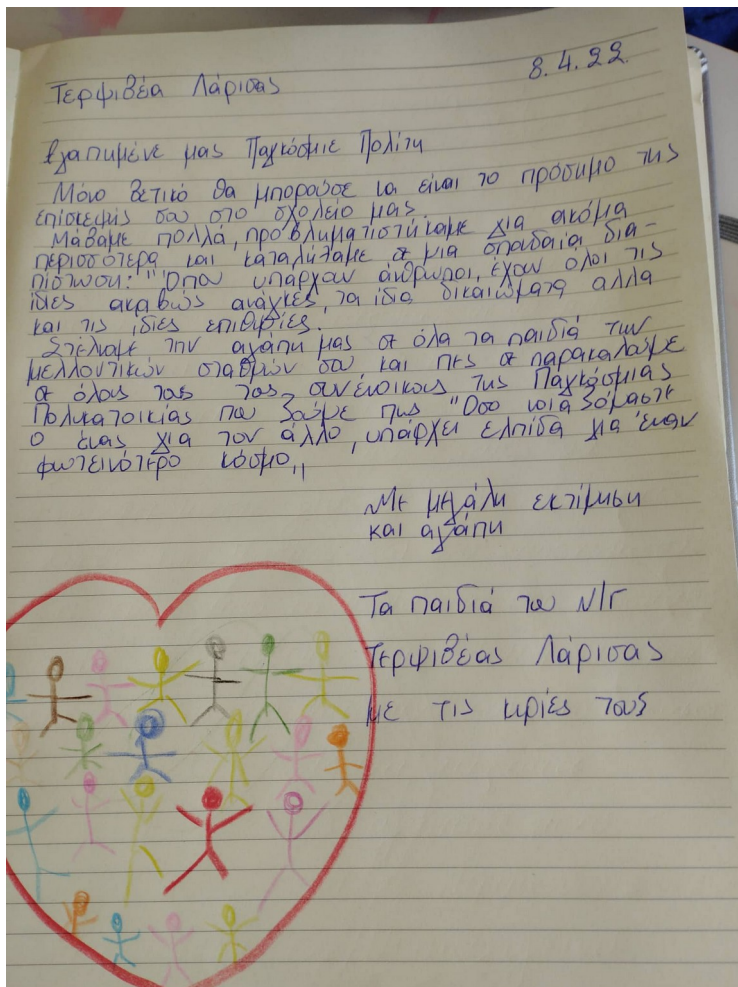 Τερψιθέα Λάρισας
8.4.22.
Αγαπημένε μας Παγκόσμιε Πολίτη
Μόνο θετικό θα μπορούσε να είναι το πρόσημο της
επίσκεψής σου στο σχολείο μας.
Μάθαμε πολλά, προβληματιστήκαμε για ακόμα
περισσότερα και καταλήξαμε σε μια σπουδαία δια-
πίστωση: "Όπου υπάρχουν άνθρωποι, έχουν όλοι τις
ίδιες ακριβώς ανάγκες, τα ίδια δικαιώματα αλλα
και τις ίδιες επιθυμίες.
Στέλνουμε την αγάπη μας σε όλα τα παιδιά των
μελλοντικών σταθμών σου και πες σε παρακαλούμε
σε όλους τους τους συνένοικους της Παγκόσμιας
Πολυκατοικίας που ζούμε πως "Όσο νοιαζόμαστε
ο ένας για τον άλλο, υπάρχει ελπίδα για έναν
φωτεινότερο κόσμο"
Με μεγάλη εκτίμηση
και αγάπη
Τα παιδιά του Ν/Γ
Τερψιθέας Λάρισας
με τις κυρίες τους